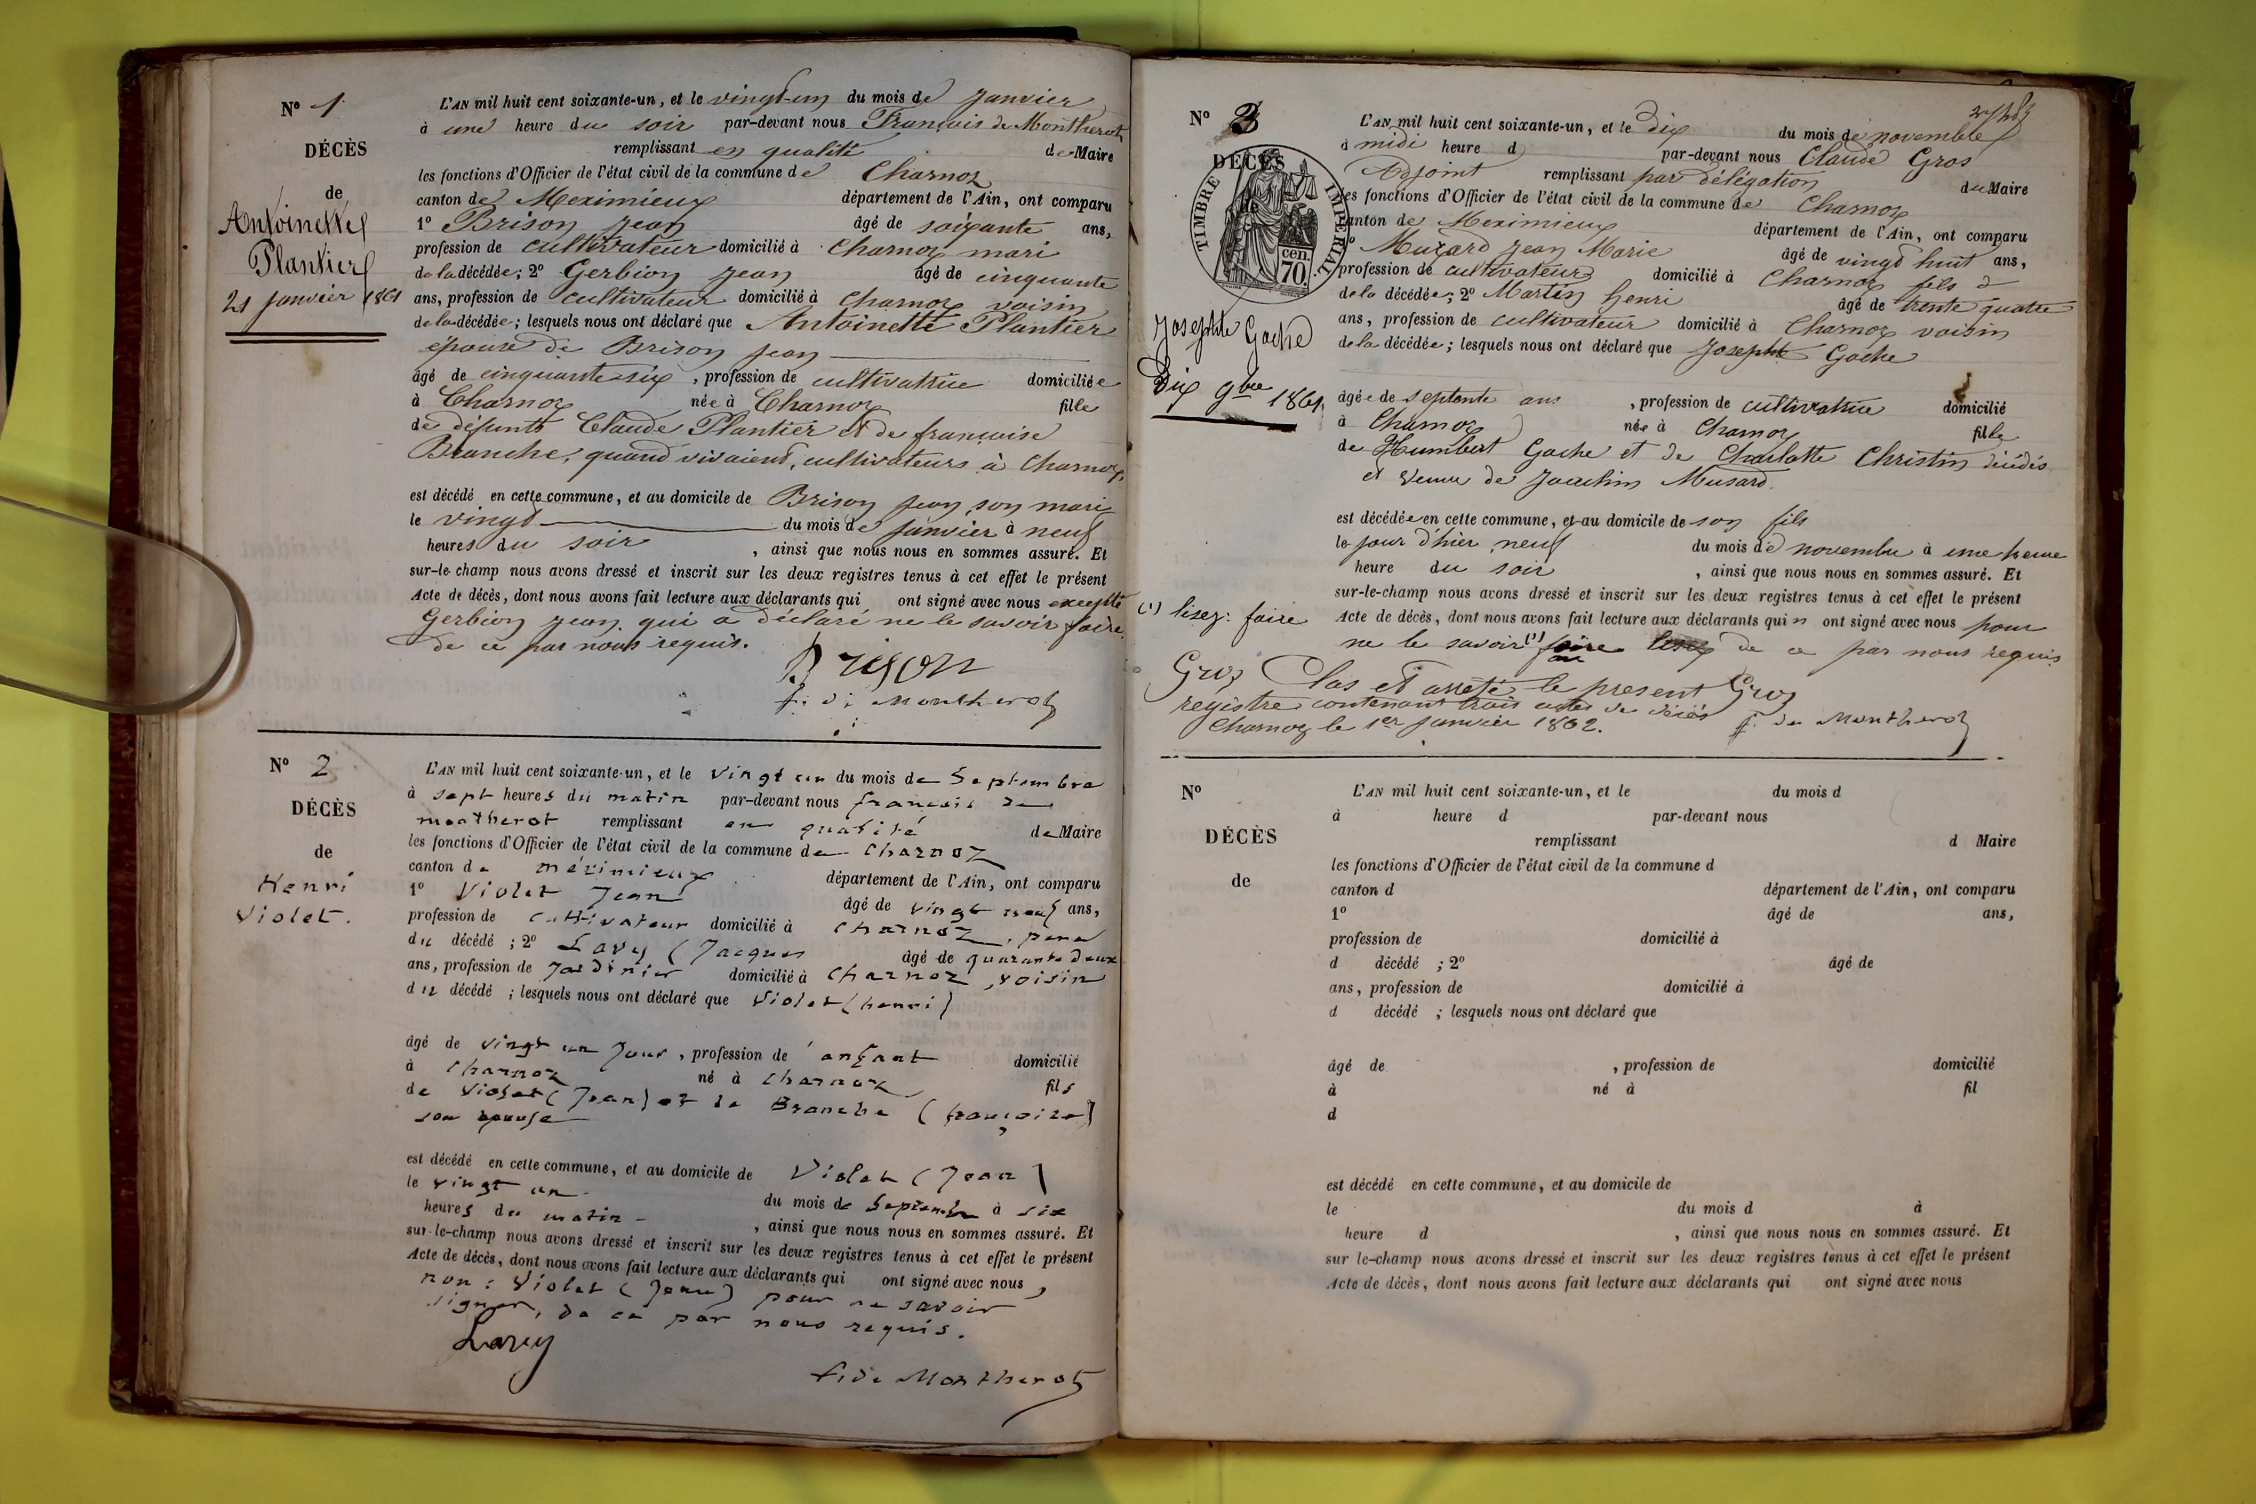 N° 1
DÉCÈS
de
Antoinette
Plantier
21 janvier 1861
L'AN mil huit cent soixante-un, et le vingt-un du mois de Janvier
à une heure du soir par-devant nous François de Montherot
remplissant en qualité de Maire
les fonctions d'Officier de l'état civil de la commune de Charnoz
canton de Meximieux département de l'Ain, ont comparu
1° Brison Jean âgé de soixante ans,
profession de cultivateur domicilié à Charnoz mari
de la décédée; 2° Gerbion Jean âgé de cinquante
ans, profession de cultivateur domicilié à Charnoz voisin
de la décédée; lesquels nous ont déclaré que Antoinette Plantier
épouse de Brison Jean
âgé de cinquante-six, profession de cultivatrice domiciliée
à Charnoz née à Charnoz fille
de défunts Claude Plantier et de françoise
Branche, quand vivaient, cultivateurs à Charnoz,
est décédé en cette commune, et au domicile de Brison Jean son mari
le vingt du mois de janvier à neuf
heures du soir, ainsi que nous nous en sommes assuré. Et
sur-le-champ nous avons dressé et inscrit sur les deux registres tenus à cet effet le présent
Acte de décès, dont nous avons fait lecture aux déclarants qui ont signé avec nous excepté
Gerbion Jean qui a déclaré ne le savoir faire
de ce par nous requis.
Brison
f. de Montherot
N° 2
DÉCÈS
de
Henri
Violet.
L'AN mil huit cent soixante-un, et le vingt un du mois de Septembre
à sept heures du matin par-devant nous françois de
montherot remplissant en qualité de Maire
les fonctions d'Officier de l'état civil de la commune de Charnoz
canton de méximieux département de l'Ain, ont comparu
1° Violet Jean âgé de vingt neuf ans,
profession de cultivateur domicilié à Charnoz, père
du décédé; 2° Lavy (Jacques âgé de quarante deux
ans, profession de Jardinier domicilié à Charnoz, voisin
du décédé; lesquels nous ont déclaré que Violet (henri)
âgé de vingt un jour, profession de enfant domicilié
à Charnoz né à Charnoz fils
de Violet (Jean) et de Branche (françoise)
son epouse
est décédé en cette commune, et au domicile de Violet (Jean)
le vingt un du mois de Septembre à six
heures du matin, ainsi que nous nous en sommes assuré. Et
sur-le-champ nous avons dressé et inscrit sur les deux registres tenus à cet effet le présent
Acte de décès, dont nous avons fait lecture aux déclarants qui ont signé avec nous,
non: Violet (Jean) pour ne savoir
signer, de ce par nous requis.
Lavy
f. de Montherot
N° 3
DÉCÈS
TIMBRE IMPERIAL
cen.
70.
Josephte Gache
Dix 9bre 1861,
L'AN mil huit cent soixante-un, et le dix du mois de novembre
à midi heure d par-devant nous Claude Gros
Adjoint remplissant par délégation du Maire
les fonctions d'Officier de l'état civil de la commune de Charnoz
canton de Meximieux département de l'Ain, ont comparu
1° Muzard Jean Marie âgé de vingt huit ans,
profession de cultivateur domicilié à Charnoz fils d
de la décédée; 2° Martin henri âgé de trente quatre
ans, profession de cultivateur domicilié à Charnoz voisin
de la décédée; lesquels nous ont déclaré que Josephte Gache
âgée de septante ans, profession de cultivatrice domicilié
à Charnoz née à Charnoz fille
de Humbert Gache et de Charlotte Christin décédés
et veuve de Joachim Musard.
est décédée en cette commune, et au domicile de son fils
le jour d'hier neuf du mois de novembre à une heure
heure du soir, ainsi que nous nous en sommes assuré. Et
sur-le-champ nous avons dressé et inscrit sur les deux registres tenus à cet effet le présent
(1) lisez: faire
Acte de décès, dont nous avons fait lecture aux déclarants qui n ont signé avec nous pour
ne le savoir (1) faire de ce par nous requis
Gros Clos et arreté le present Gros
registre contenant trois actes de décès
Charnoz le 1er Janvier 1862. f. de Montherot
N°
DÉCÈS
de
L'AN mil huit cent soixante-un, et le du mois d
à heure d par-devant nous
remplissant d Maire
les fonctions d'Officier de l'état civil de la commune d
canton d département de l'Ain, ont comparu
1° âgé de ans,
profession de domicilié à
d décédé ; 2° âgé de
ans, profession de domicilié à
d décédé ; lesquels nous ont déclaré que
âgé de , profession de domicilié
à né à fil
d
est décédé en cette commune, et au domicile de
le du mois d à
heure d , ainsi que nous nous en sommes assuré. Et
sur le-champ nous avons dressé et inscrit sur les deux registres tenus à cet effet le présent
Acte de décès, dont nous avons fait lecture aux déclarants qui ont signé avec nous